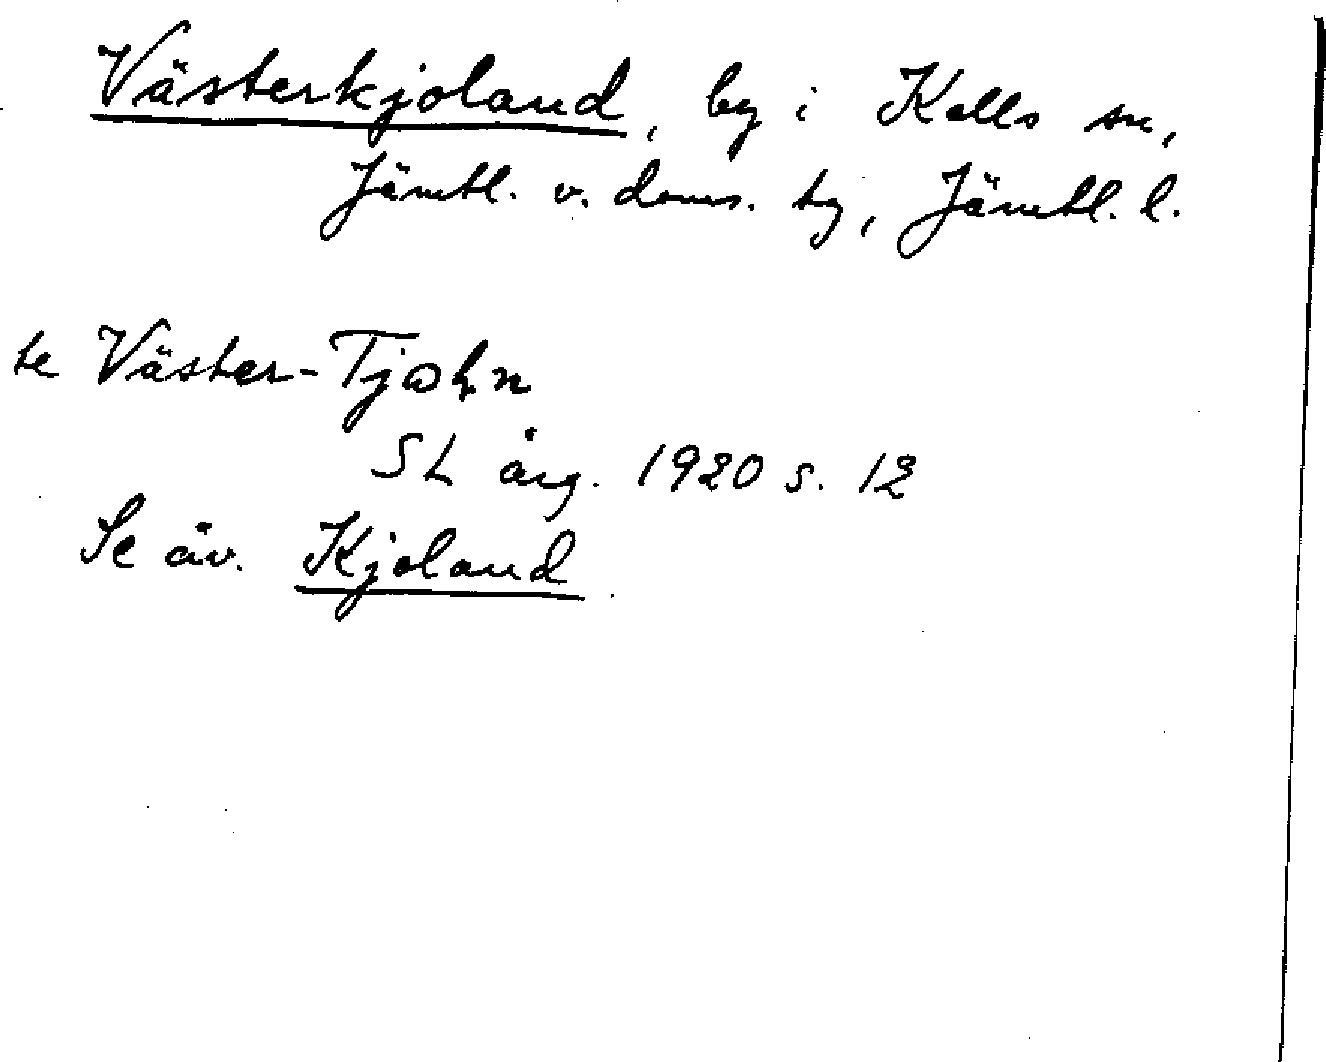 Västerkjoland, by i Kalls sn,
Jämtl. v. doms. tg, Jämtl. l.
te Väster-Tjohn
SL årg. 1920 s. 12
Se äv. Kjoland